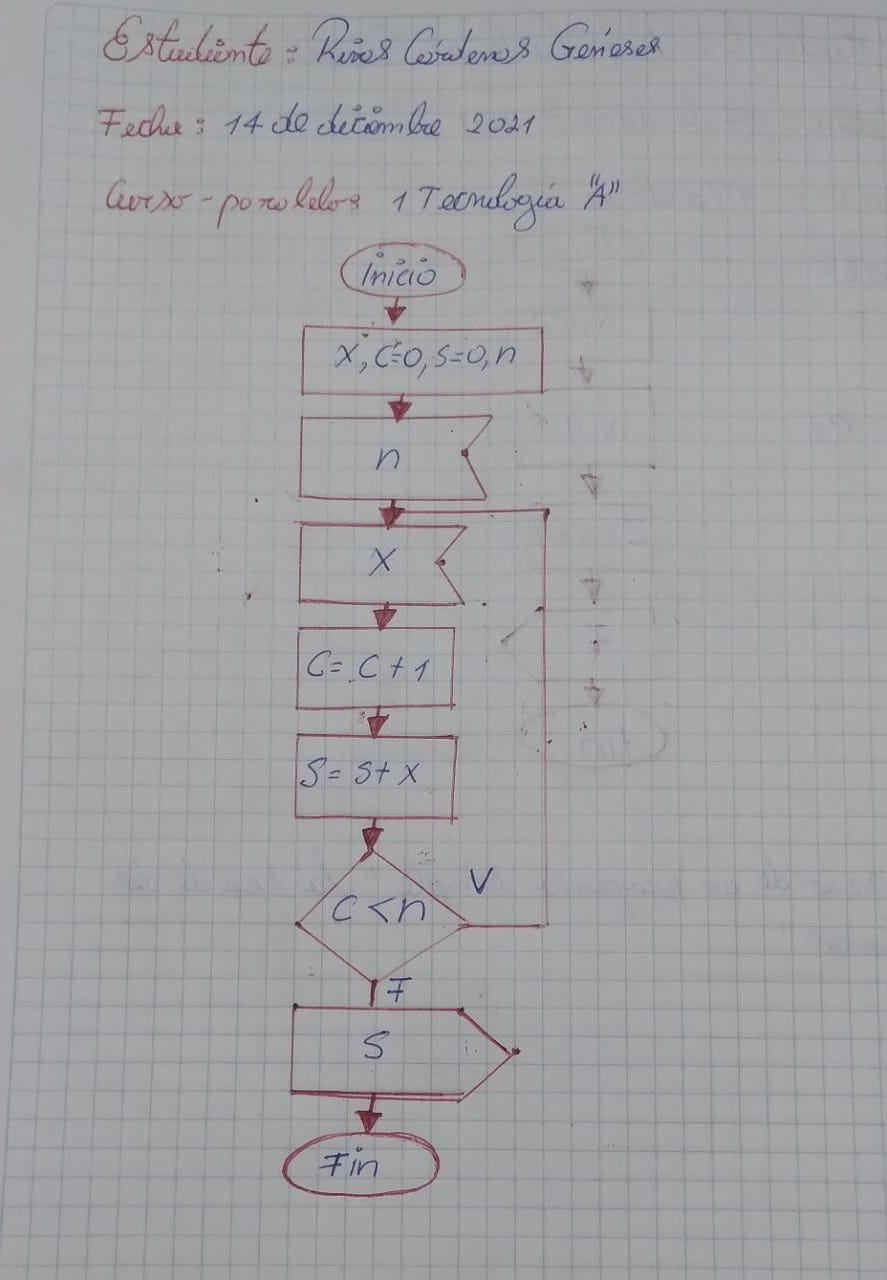 Estudiante: Rivas Cárdenas Genesis
Fecha: 14 de diciembre 2021
Curso - paralelos 1 Tecnología "A"
Inicio
X, C=0, S=0, n
n
X
C= C + 1
S= S + X
C < n
V
F
S
Fin